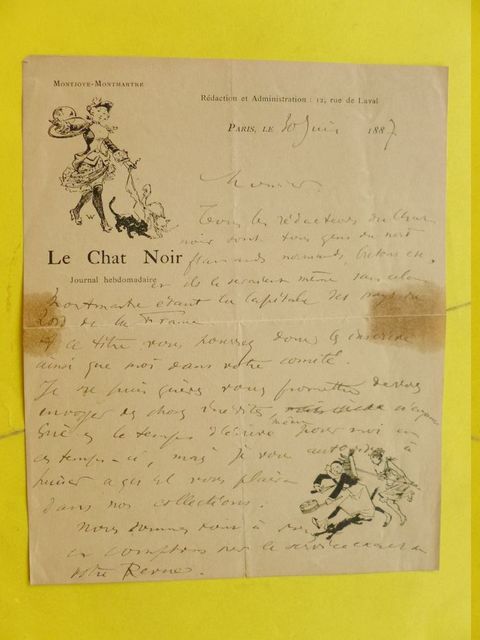 MONTJOYE-MONTMARTRE
Rédaction et Administration : 12, rue de Laval
PARIS, LE 30 Juin 1887
Monsieur,
Tous les rédacteurs du Chat
noir sont tous gens du nord
Le Chat Noir
flamands normands, bretons
Journal hebdomadaire
ils le seraient même sans cela
Montmartre étant la capitale des pays du
Nord de la France
A ce titre vous pouvez donc les inscrire
ainsi que moi dans votre comité.
Je ne puis guère vous promettre de vous
envoyer des choses inédites
le temps d'écrire même pour moi en
ces temps-ci, mais je vous autorise à
puiser
dans nos collections.
Nous sommes tout à vous
et comptons sur le service exact de
votre Revue.